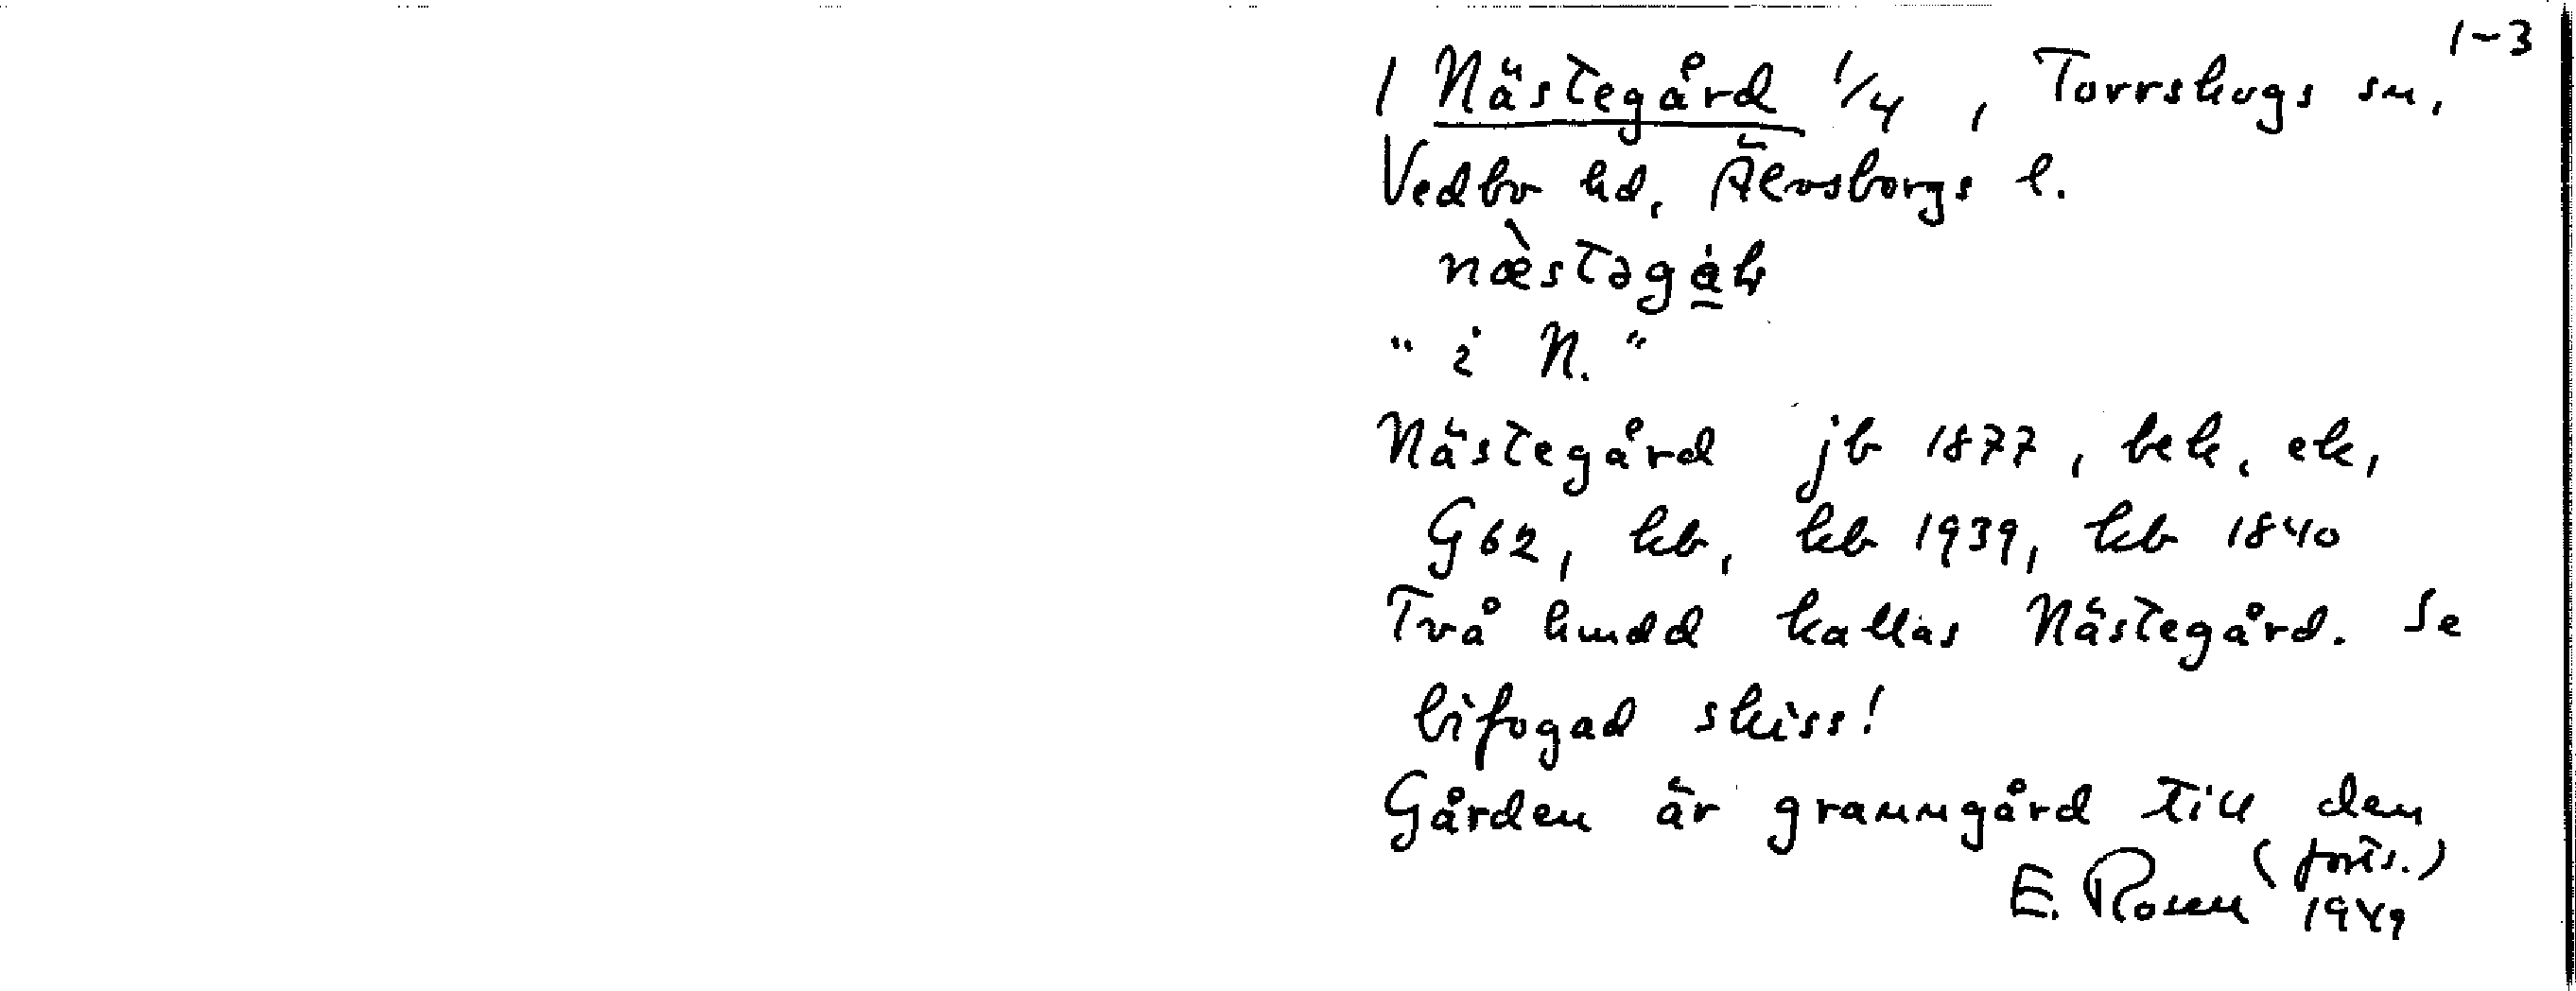 1-3
1 Nästegård 1/4, Torrskogs sn,
Vedbo hd, Älvsborgs l.
"i N."
Nästegård jb 1877, bek, ek,
G62, kb, kb 1939, kb 1840
Två hmdd kallas Nästegård. Se
bifogad skiss!
Gården är granngård till den
(forts.)
E. Rosen 1949